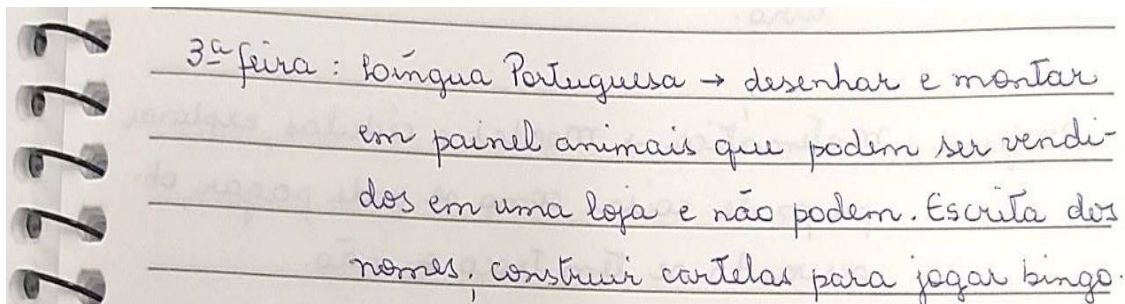 3ª feira: Língua Portuguesa → desenhar e montar
em painel animais que podem ser vendi-
dos em uma loja e não podem. Escrita dos
nomes, construir cartelas para jogar bingo.